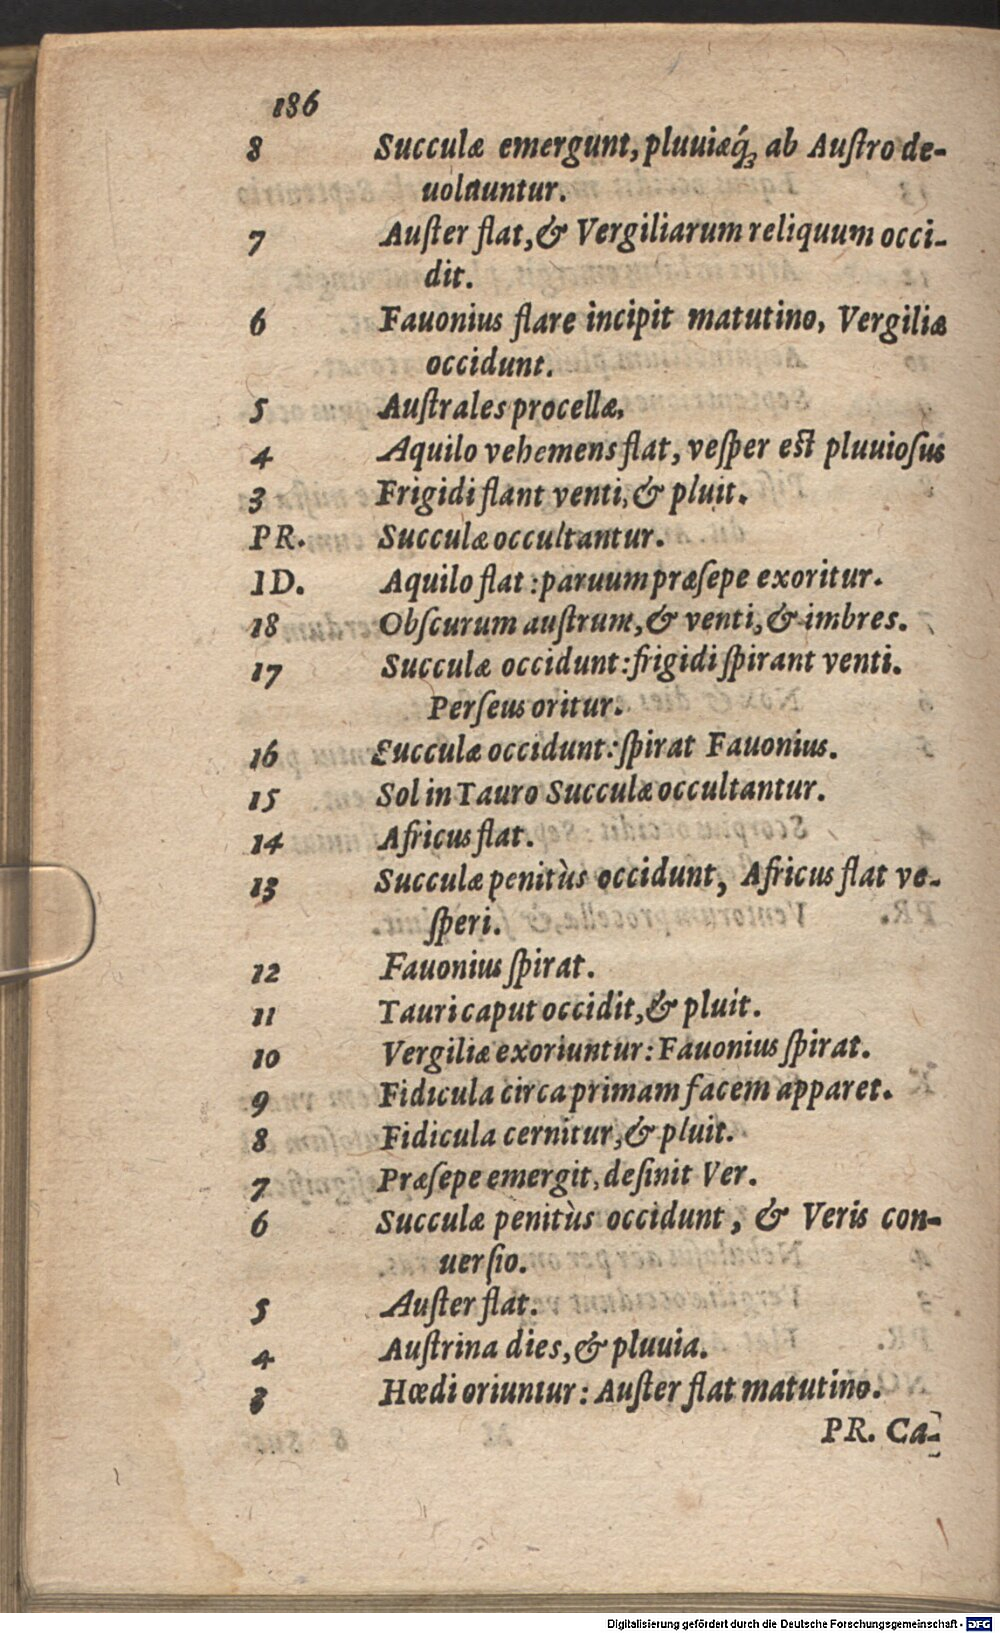 186
8 Succulæ emergunt, pluuiæq́ꝫ ab Auſtro de-
uoluuntur.
7 Auſter flat, & Vergiliarum reliquum occi-
dit.
6 Fauonius flare incipit matutino, Vergiliæ
occidunt.
5 Auſtrales procellæ.
4 Aquilo vehemens flat, veſper est pluuioſus
3 Frigidi flant venti, & pluit.
PR. Succulæ occultantur.
ID. Aquilo flat: paruum præſepe exoritur.
18 Obſcurum auſtrum, & venti, & imbres.
17 Succulæ occidunt: frigidi ſpirant venti.
Perſeus oritur.
16 Succulæ occidunt: ſpirat Fauonius.
15 Sol in Tauro Succulæ occultantur.
14 Africus flat.
13 Succulæ penitùs occidunt, Africus flat ve-
ſperi.
12 Fauonius ſpirat.
11 Tauri caput occidit, & pluit.
10 Vergiliæ exoriuntur: Fauonius ſpirat.
9 Fidicula circa primam facem apparet.
8 Fidicula cernitur, & pluit.
7 Præſepe emergit, deſinit Ver.
6 Succulæ penitùs occidunt, & Veris con-
uerſio.
5 Auſter flat.
4 Auſtrina dies, & pluuia.
3 Hœdi oriuntur: Auſter flat matutino.
PR. Ca-
Digitalisierung gefördert durch die Deutsche Forschungsgemeinschaft - DFG